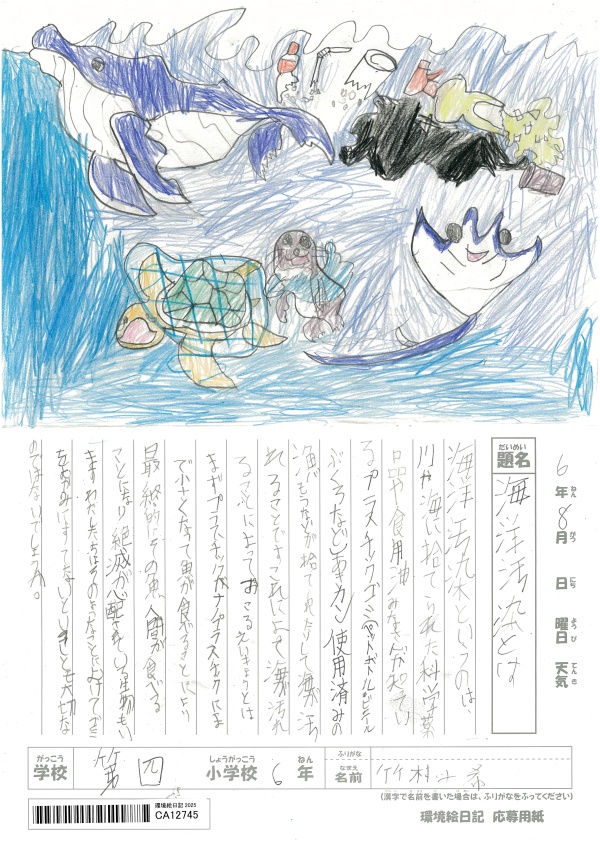 6年8月 日 曜日 天気
ねん がつ にち ようび てんき
だいめい
題名 海洋汚染とは
海洋汚染というのは、
川や海に捨てられた科学薬
品や食用油みなさんが知ってい
るプラスチックゴミ(ペットボトル・ビニール
ぶくろなど)、あきカン、使用済みの
漁がもうなどが捨てられたりして海が汚
れることです。これによって海が汚れ
ることによっておこるえいきょうとは
まずプラスチックがナノプラスチックにま
で小さくなって魚が食べることにより
最終的にその魚、人間が食べる
ことになり、絶滅が心配されている生物もい
ます。わたしたちはそのようなことにむけてゴミ
をおうみにすてないということも大切な
のではないでしょうか。
がっこう
学校 第四
しょうがっこう
小学校 6 ねん
年
ふりがな
なまえ
名前 竹村 希
(漢字で名前を書いた場合は、ふりがなをふってください)
環境絵日記 2025
CA12745
環境絵日記 応募用紙